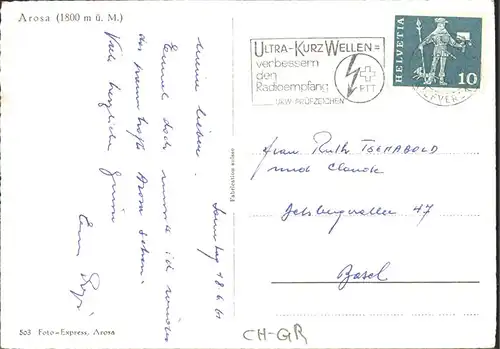 Arosa (1800 m ü. M.)
Samstag 18.6.61
Meine Lieben.
Einmal doch musste ich wieder
das prachtvolle Arosa sehen.
Viele herzliche Grüsse
Fabrication suisse
503 Foto-Express, Arosa
ULTRA-KURZ WELLEN =
verbessern
den
Radioempfang
PTT
UKW-PRÜFZEICHEN
HELVETIA
10
Frau Ruth TSCHABOLD
und Claude
47
Basel
CH-GR